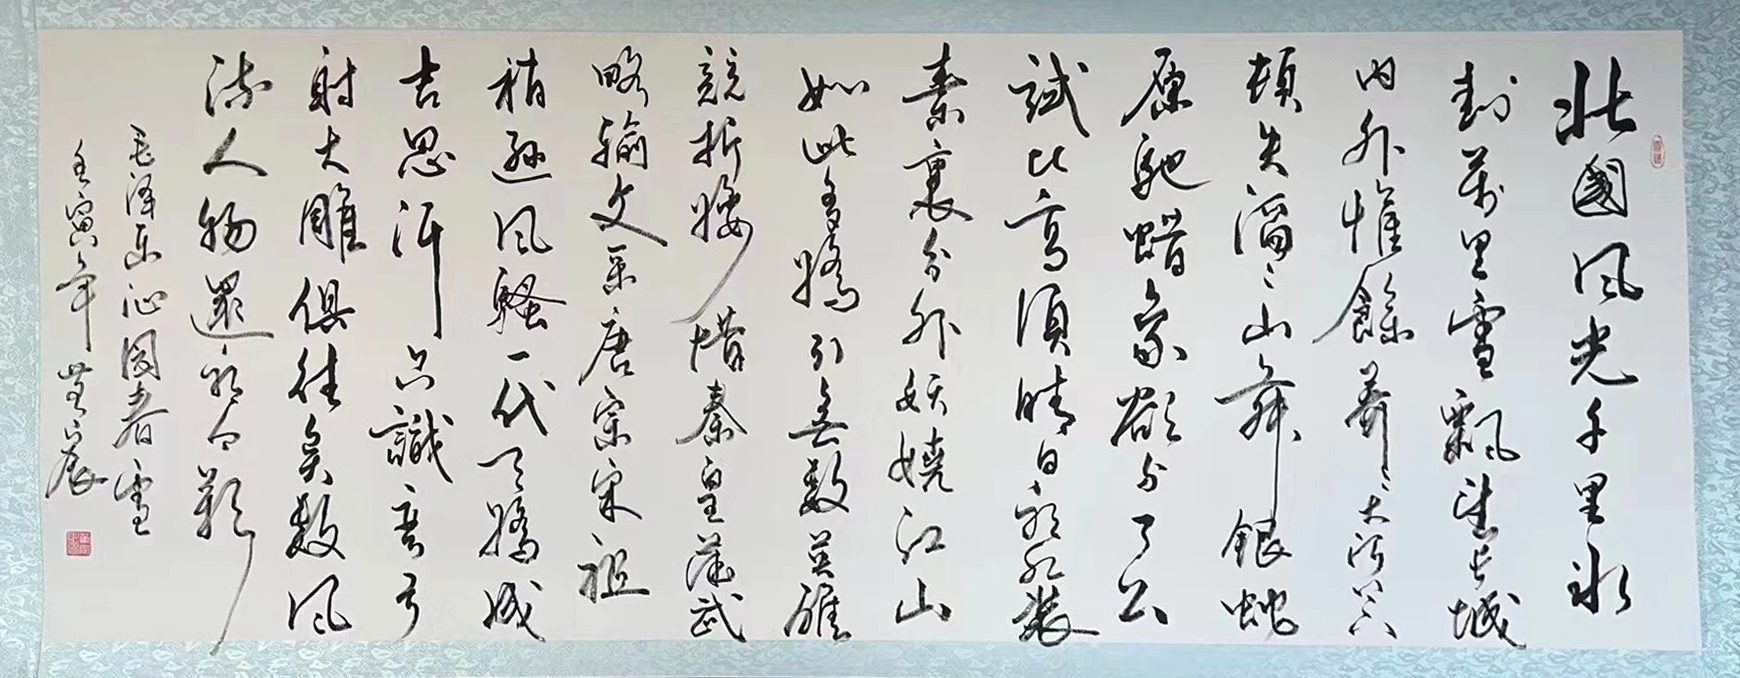 北國風光千里冰
封萬里雪飄望長城
内外惟餘莽〻大河上下
頓失滔〻山舞銀蛇
原馳蠟象欲与天公
試比高須晴日看紅裝
素裹分外妖嬈江山
如此多嬌引無數英雄
競折腰惜秦皇漢武
略輸文采唐宗宋祖
稍遜風騷一代天驕成
吉思汗只識彎弓
射大雕俱往矣數風
流人物還看今朝
毛澤東沁園春雪
壬寅年